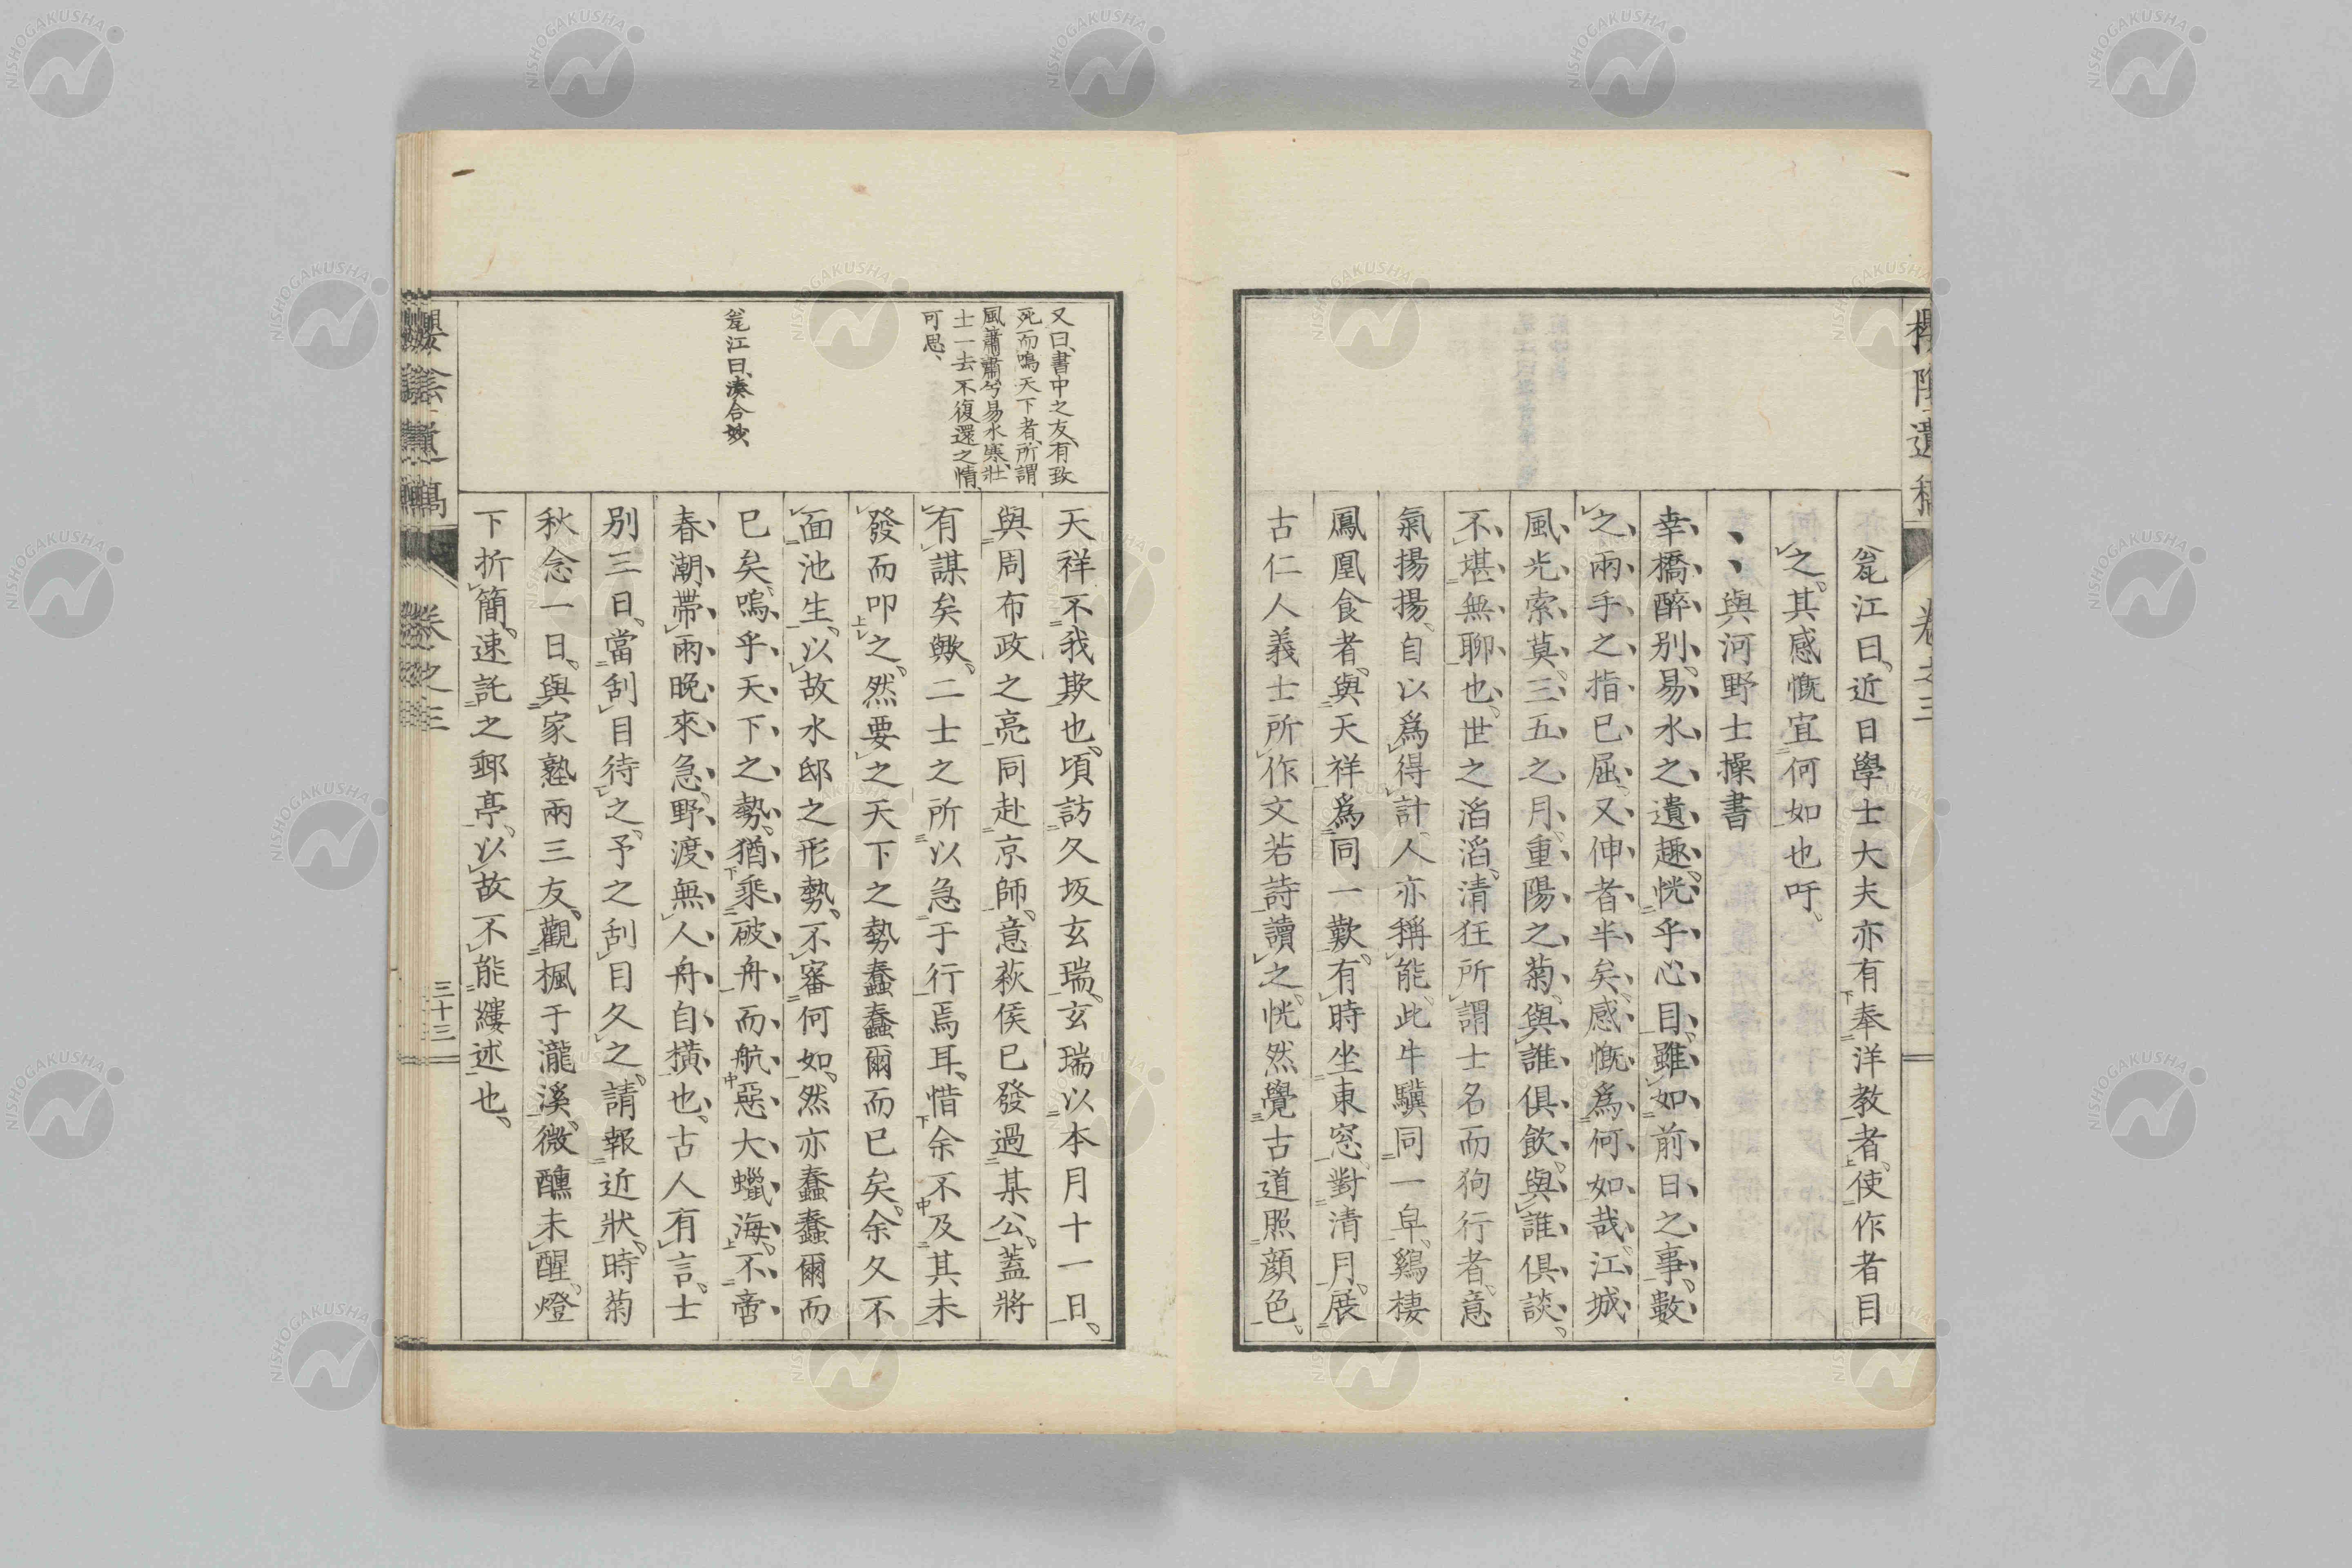 櫻陰遺稿
卷之三
瓮江曰、近日學士大夫亦有奉洋教者、使作者目
之、其感慨宜何如也吁、
與河野士操書
幸橋醉別、易水之遺趣、恍乎心目、雖如前日之事、數
之兩手之指已屈、又伸者半矣、感慨爲何如哉、江城
風光索莫、三五之月、重陽之菊、與誰俱飲、與誰俱談、
不堪無聊也、世之滔滔、清狂所謂士名而狗行者、意
氣揚揚、自以爲得計、人亦稱能、此牛驥同一皁、鷄棲
鳳凰食者、與天祥爲同一歎、有時坐東窓、對清月、展
古仁人義士所作文若詩讀之、恍然覺古道照顔色、
又曰、書中之友、有致
死而鳴天下者、所謂
風蕭蕭兮易水寒、壯
士一去不復還之情、
可思、
瓮江曰、湊合妙、
天祥不我欺也、頃訪久坂玄瑞、玄瑞以本月十一日、
與周布政之亮同赴京師、意萩侯已發過某公、蓋將
有謀矣歟、二士之所以急于行焉耳、惜余不及其未
發而叩之、然要之天下之勢蠢蠢爾而已矣、余久不
面池生、以故水邸之形勢、不審何如、然亦蠢蠢爾而
已矣、嗚乎天下之勢、猶乘破舟而航惡大蠟海、不啻
春潮帶雨晩來急、野渡無人舟自横也、古人有言、士
別三日、當刮目待之、予之刮目久之、請報近狀、時菊
秋念一日、與家塾兩三友、觀楓于瀧溪、微醺未醒、燈
下折簡、速託之郵亭、以故不能縷述也、
櫻陰遺稿
卷之三
三十三